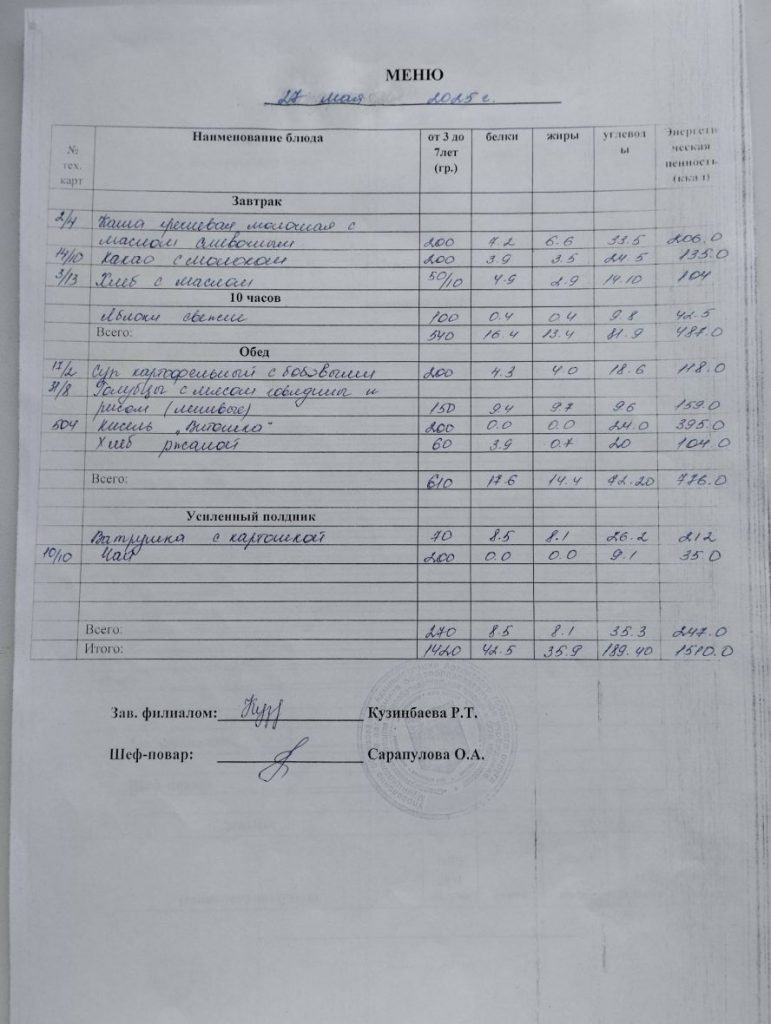 МЕНЮ
27 мая 2025 г.
№ тех. карт Наименование блюда от 3 до 7лет (гр.) белки жиры углеводы Энергетическая ценность (ккал)
Завтрак
2/4 Каша гречневая молочная с
маслом сливочным 200 7.2 6.6 33.5 206.0
14/10 Какао с молоком 200 3.9 3.5 24.5 135.0
3/13 Хлеб с маслом 50/10 4.9 2.9 14.10 104
10 часов
Яблоки свежие 100 0.4 0.4 9.8 42.5
Всего: 540 16.4 13.4 81.9 487.0
Обед
17/2 Суп картофельный с бобовыми 200 4.3 4.0 18.6 118.0
31/8 Голубцы с мясом говядины и
рисом (ленивые) 150 9.4 9.7 9.6 159.0
504 Кисель „Витошка" 200 0.0 0.0 24.0 395.0
Хлеб ржаной 60 3.9 0.7 20 104.0
Всего: 610 17.6 14.4 72.20 776.0
Усиленный полдник
Ватрушка с картошкой 70 8.5 8.1 26.2 212
10/10 Чай 200 0.0 0.0 9.1 35.0
Всего: 270 8.5 8.1 35.3 247.0
Итого: 1420 42.5 35.9 189.40 1510.0
Зав. филиалом: Кузинбаева Р.Т.
Шеф-повар: Сарапулова О.А.